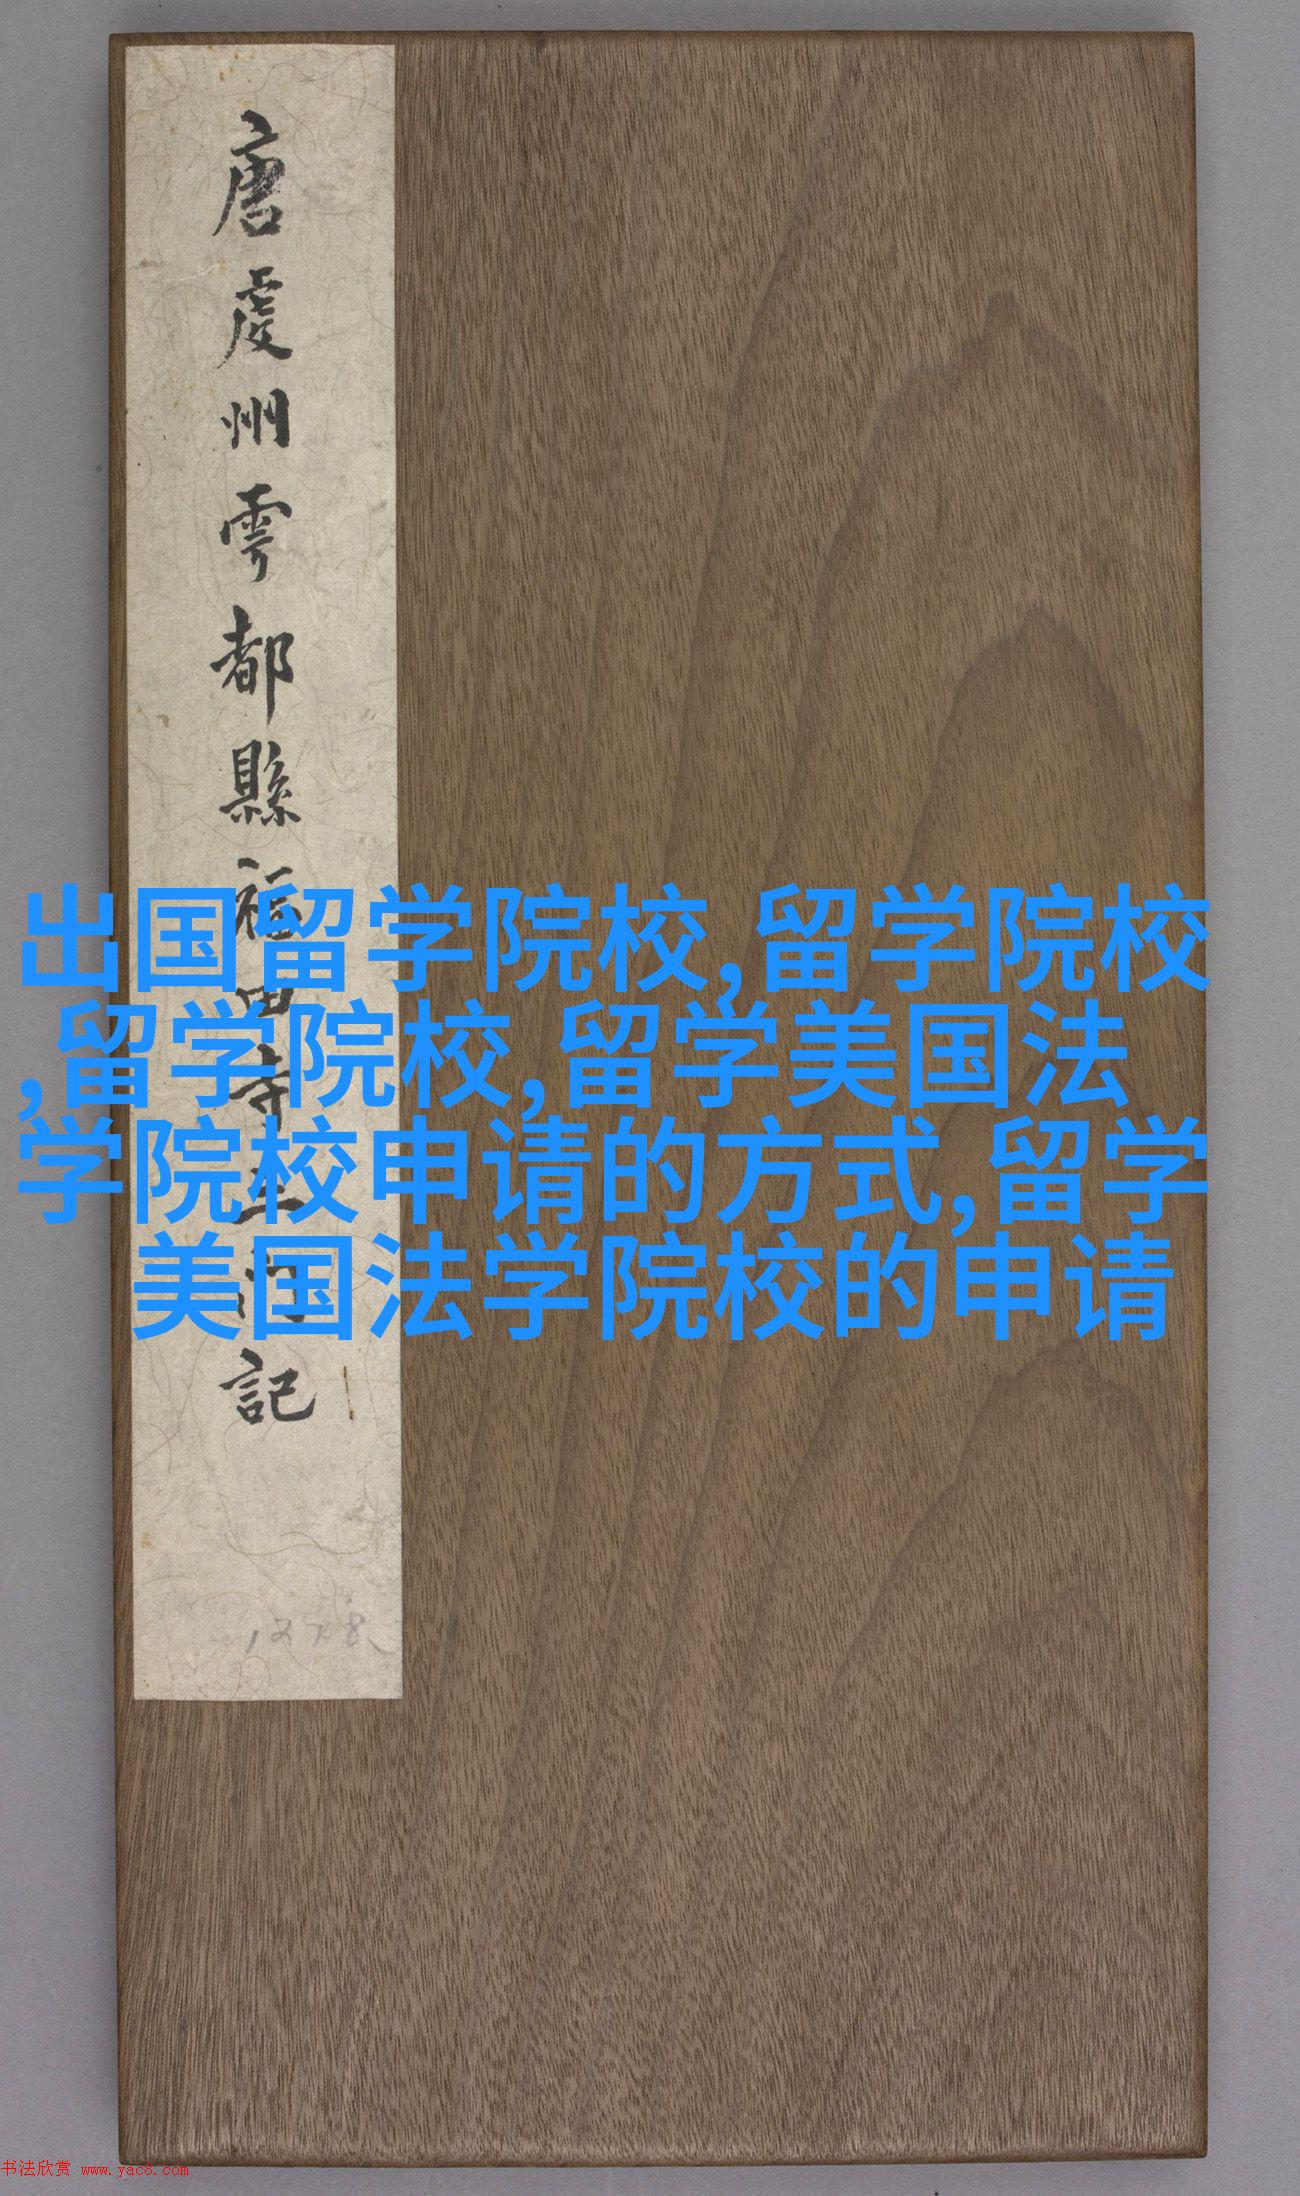 唐虔州雩都縣福田寺三門記
出国留学院校,留学院校
,留学院校,留学美国法
学院校申请的方式,留学
美国法学院校的申请
书法欣赏 www.yac8.com